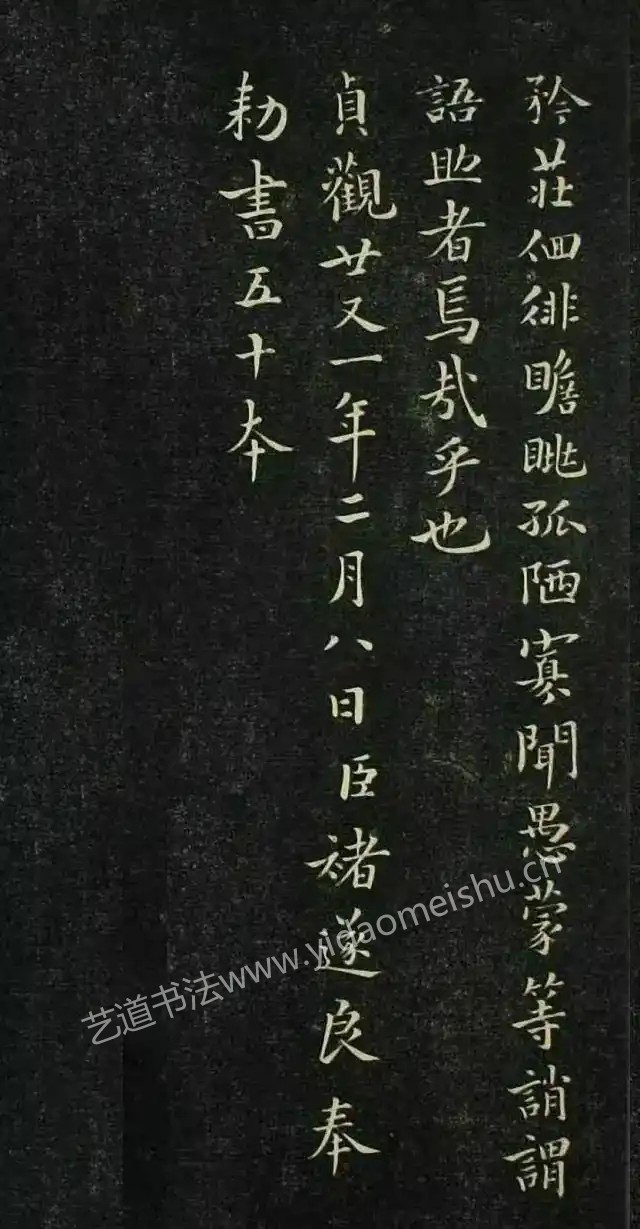 矜莊徊徘瞻眺孤陋寡聞愚蒙等誚謂
語助者焉哉乎也
貞觀廿又一年二月八日臣褚遂良奉
勑書五十本
艺道书法www.yidaomeishu.cn